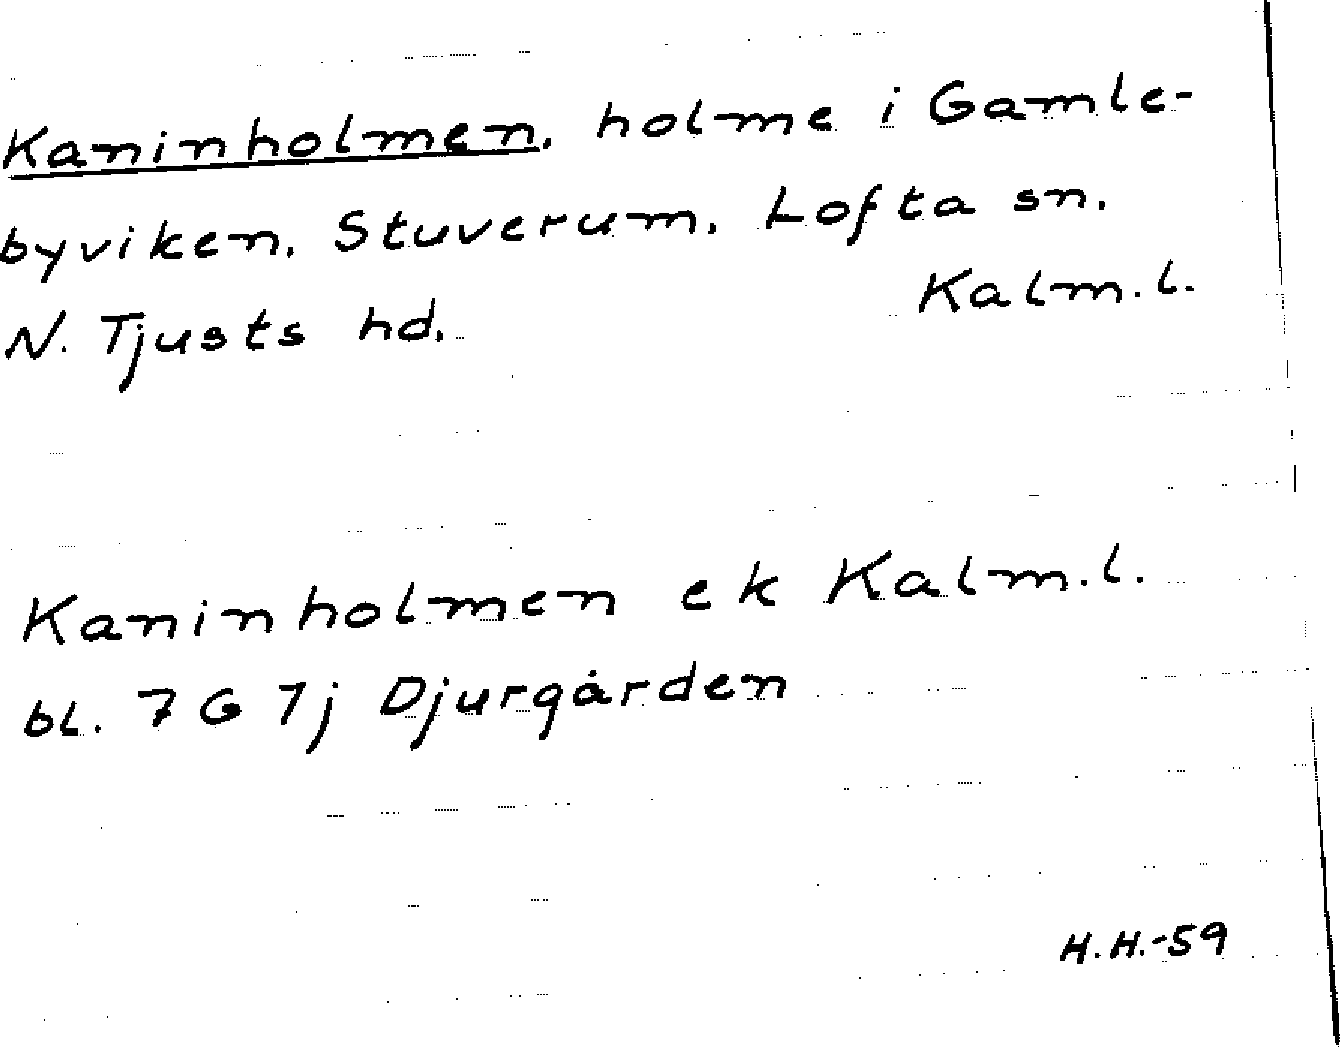 Kaninholmen, holme i Gamle-
byviken, Stuverum, Lofta sn,
N. Tjusts hd, Kalm.l.
Kaninholmen ek Kalm.l.
bl. 7 G 7j Djurgården
H.H.-59